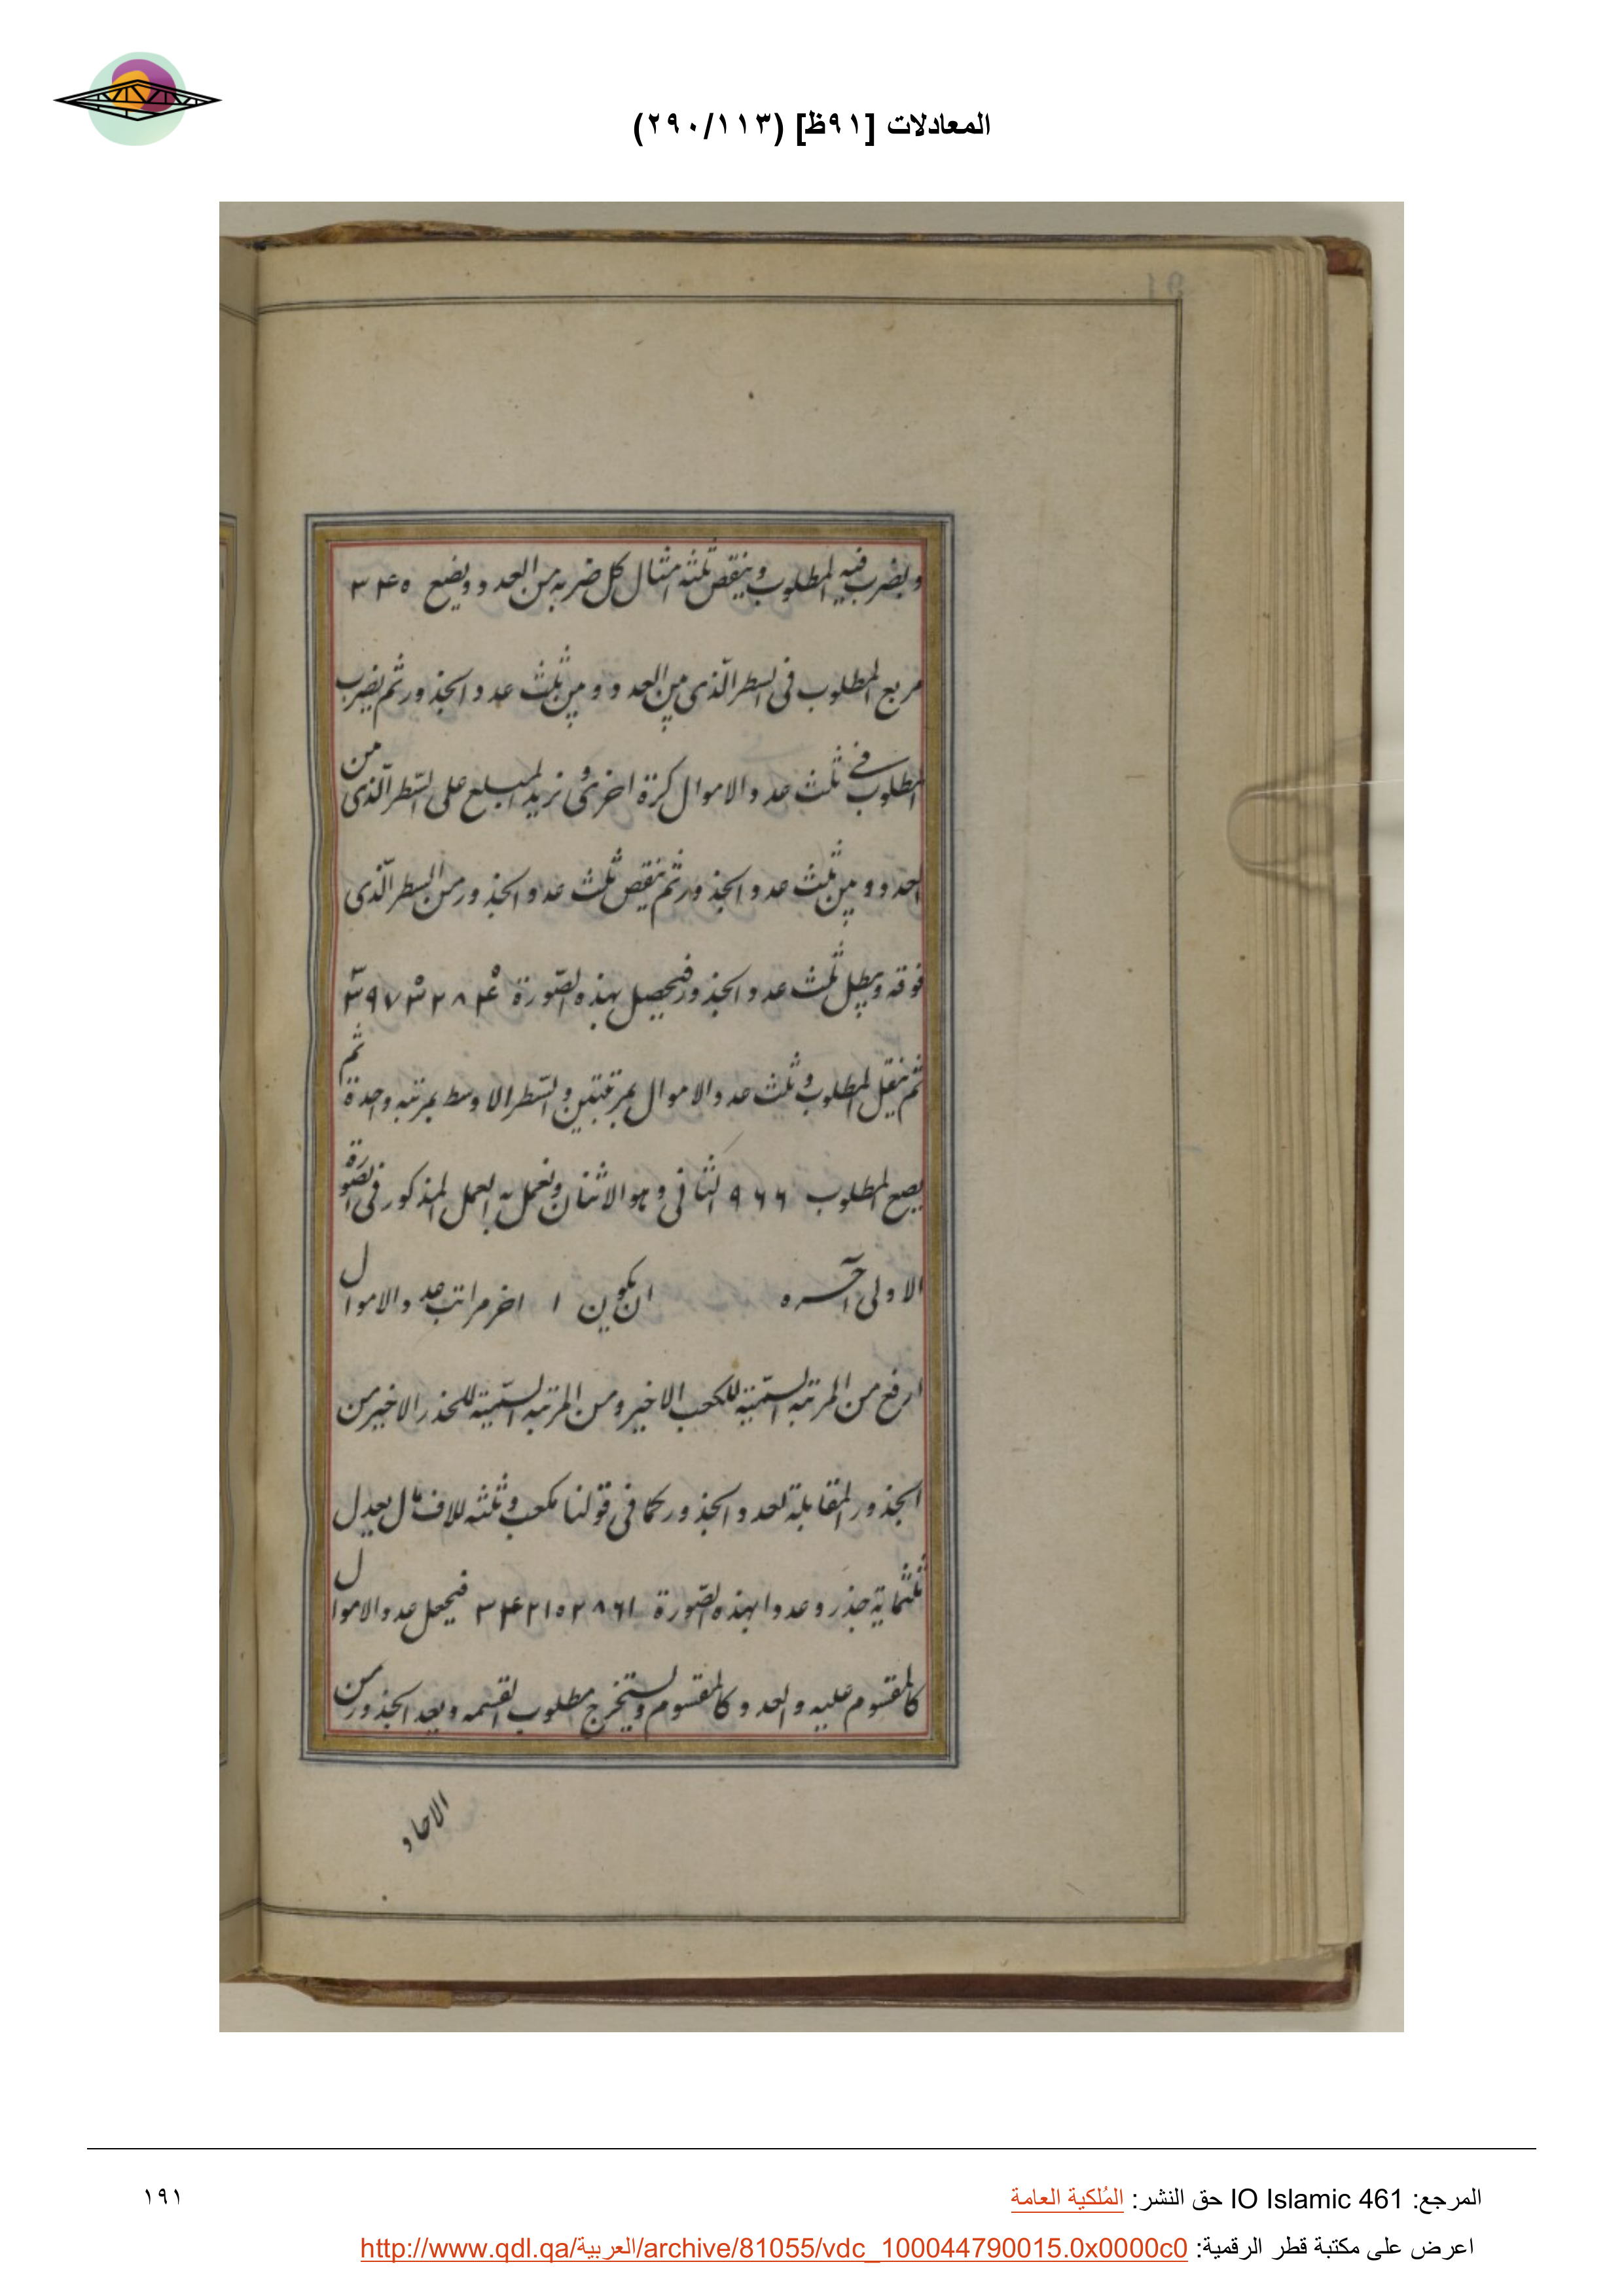 المعادلات [٩١ظ] (٢٩٠/١١٣)
ويضرب فيه المطلوب وينقص ثلثه امثال كل ضربه من العدد ويضع ٣۴٥
مربع المطلوب فى السطر الذى بين العدد وبين ثلث عدد الجذور ثم يضرب
المطلوب فى ثلث عدد الاموال كرة اخرى ونزيد المبلغ على السطر الذى من
العدد وبين ثلث عدد الجذور ثم ينقص ثلث عدد الجذور من السطر الذى
فوقه ويبطل ثلث عدد الجذور فيحصل بهذه الصورة
ثم ينقل المطلوب وثلث عدد الاموال بمرتبتين والسطر الاوسط بمرتبه واحدة ثم
يضع المطلوب ٩٦٦ الثانى وهو الاثنان ونعمل به العمل المذكور فى الصورة
الاولى آخره ان يكون ا اخر مراتب عدد الاموال
ارفع من المرتبه السمية للكعب الاخير ومن المرتبه السمية للجذر الاخير من
الجذور المقابلة لعدد الجذور كما فى قولنا مكعب وثلثه الاف مال يعدل
ثلثماية جذر وعددا بهذه الصورة ٣۴٢١٥٢٨٦١ فيجعل عدد الاموال
كالمقسوم عليه والعدد كالمقسوم ويستخرج مطلوب القسمه ويعد الجذور من
الاحاد
المرجع: IO Islamic 461 حق النشر: المُلكية العامة
١٩١
اعرض على مكتبة قطر الرقمية: http://www.qdl.qa/العربية/archive/81055/vdc_100044790015.0x0000c0